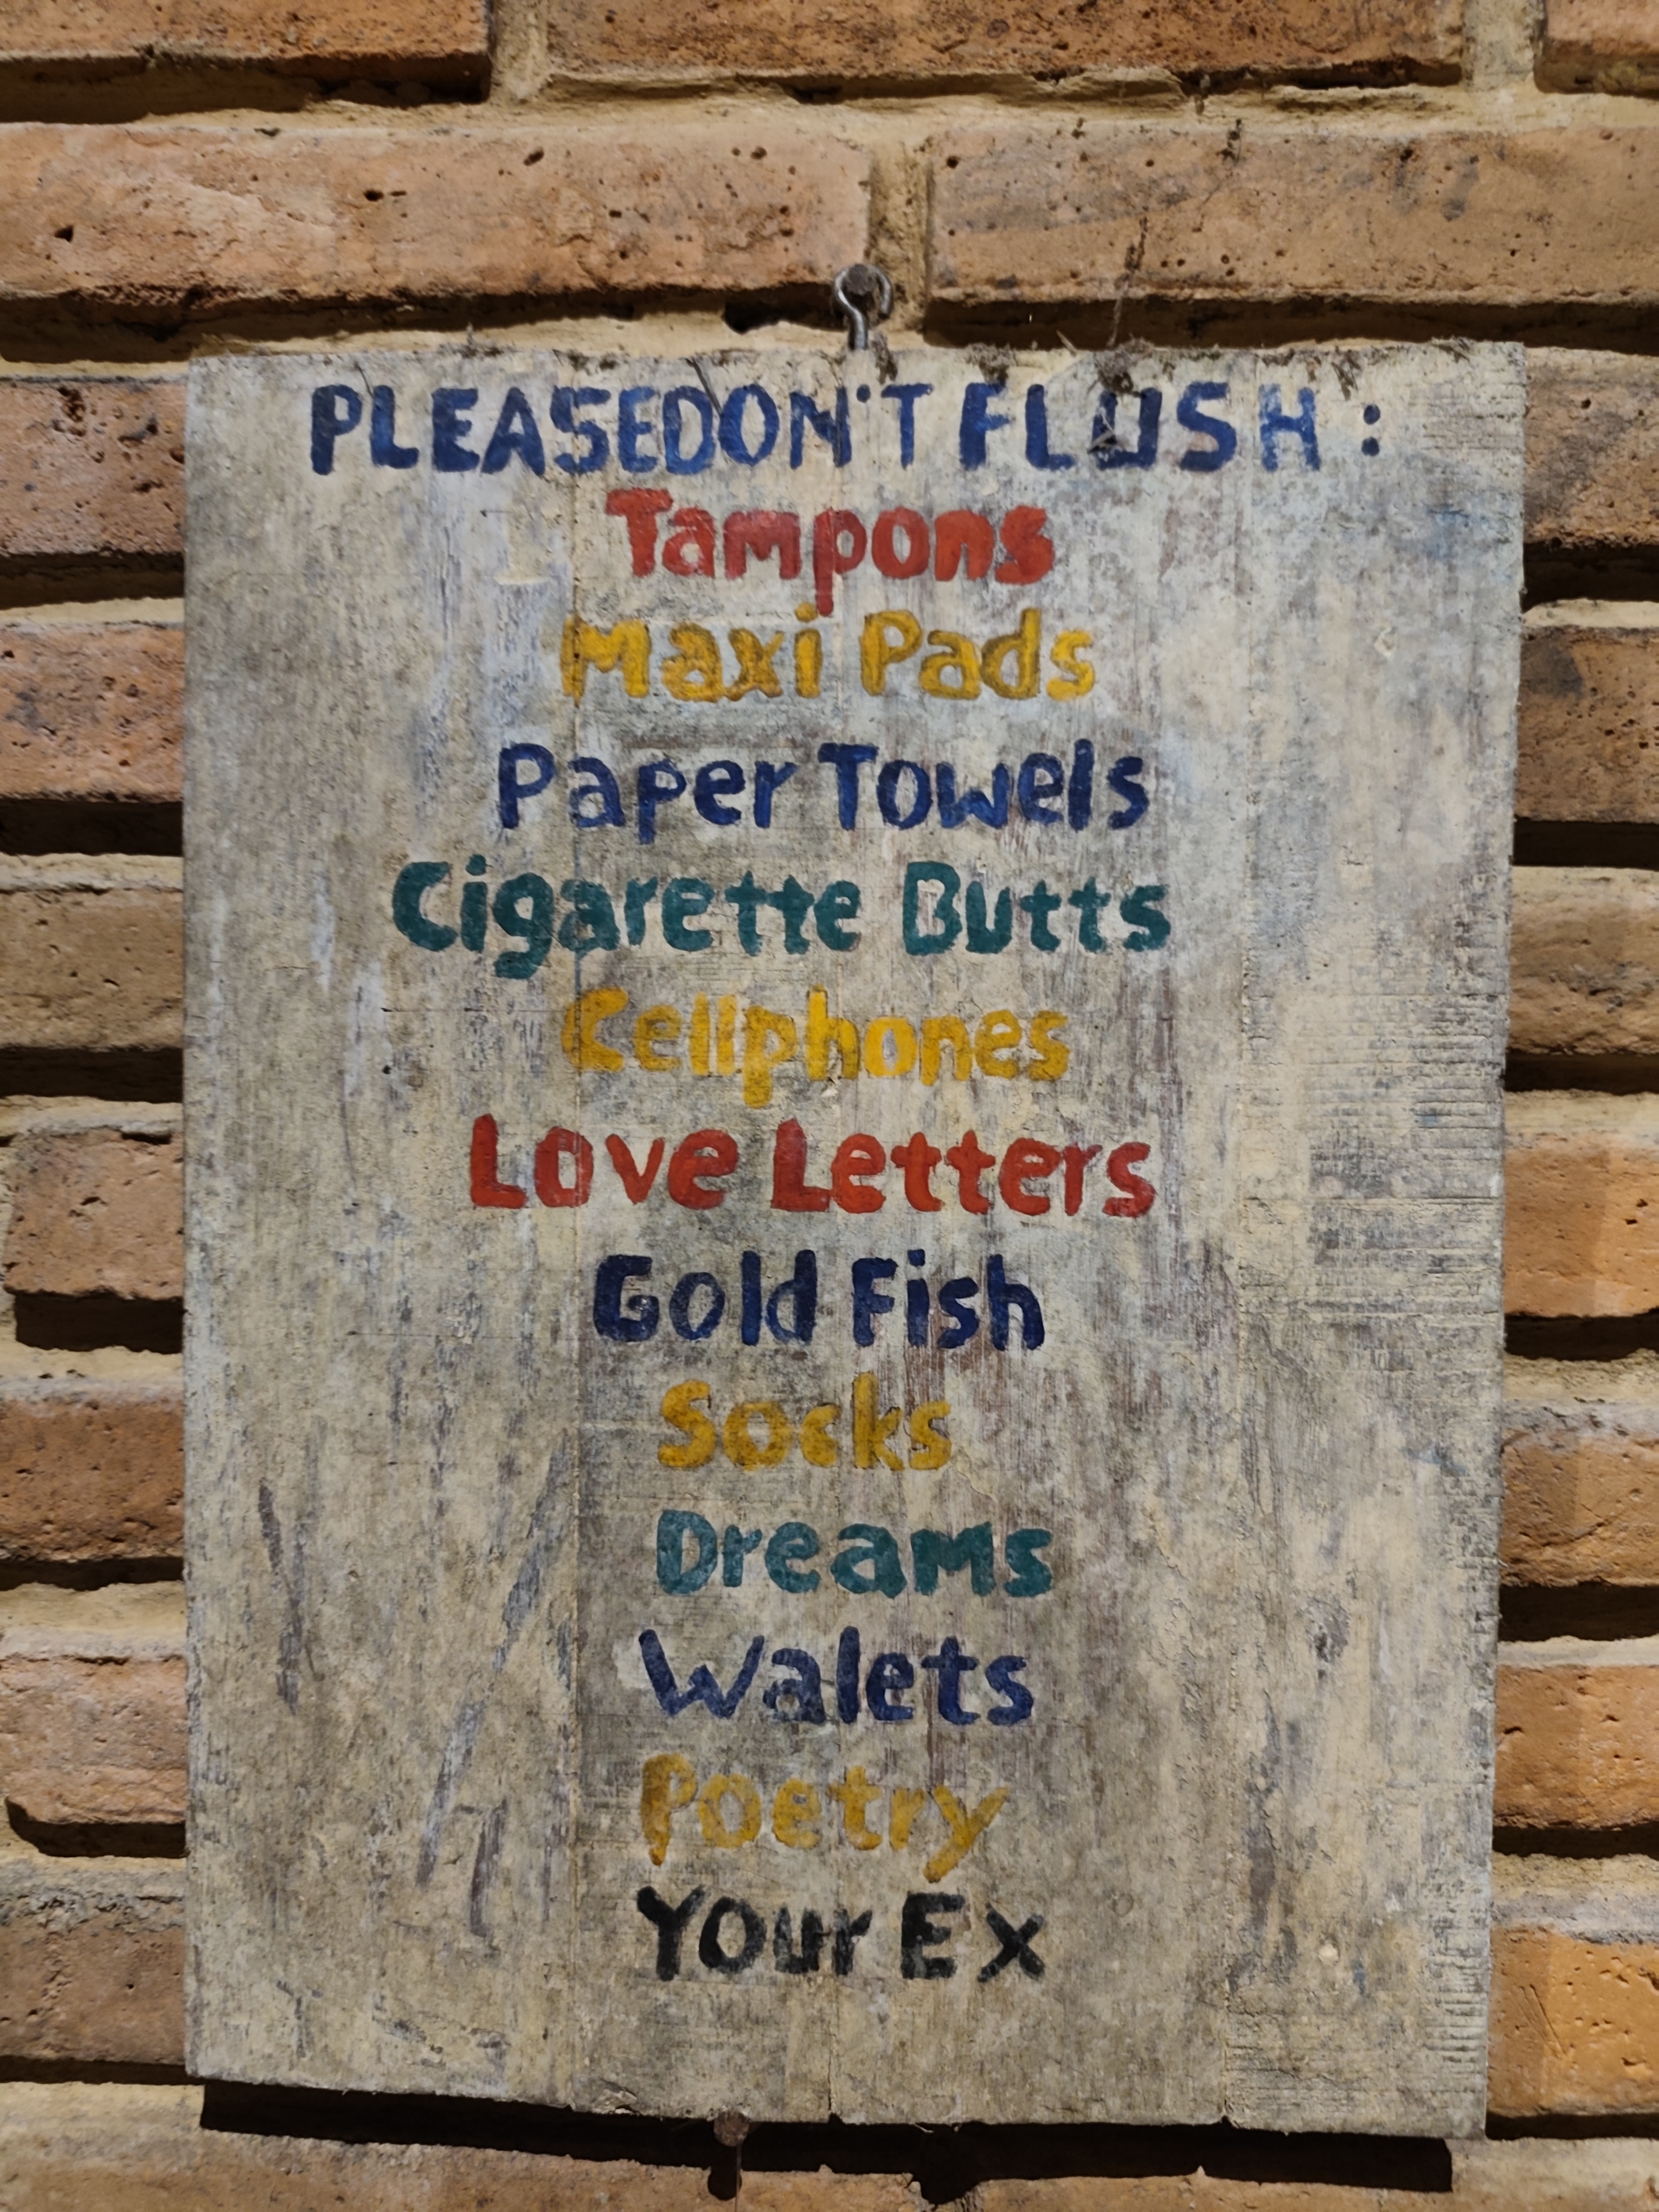 PLEASE DON'T FLUSH :
Tampons
Maxi Pads
Paper Towels
Cigarette Butts
Cellphones
Love Letters
Gold Fish
Socks
Dreams
Walets
Poetry
Your Ex